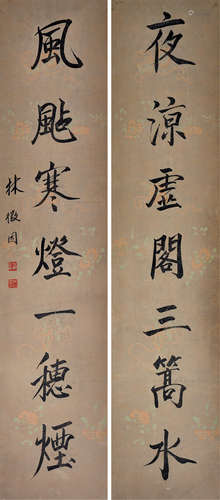 夜涼虛閣三篙水
風颭寒燈一穗煙
林徵因